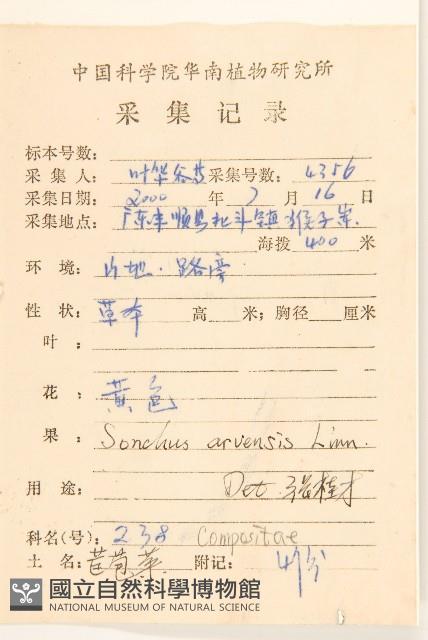 中国科学院华南植物研究所
采集记录
标本号数:
采集人: 叶华谷等 采集号数: 4356
采集日期: 2000 年 7 月 16 日
采集地点: 广东丰顺县北斗镇猴子岽.
海拨 400 米
环境: 山地. 路旁
性状: 草本 高 米; 胸径 厘米
叶:
花: 黄色
果: Sonchus arvensis Linn.
用途: Det. 张桂才
科名(号): 238 Compositae
土名: 苣荬菜 附记: 4份
國立自然科學博物館
NATIONAL MUSEUM OF NATURAL SCIENCE